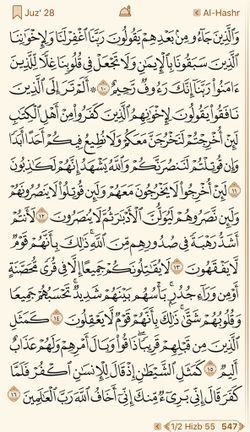 Juz' 28
Al-Hashr
وَٱلَّذِينَ جَآءُو مِنۢ بَعْدِهِمْ يَقُولُونَ رَبَّنَا ٱغْفِرْ لَنَا وَلِإِخْوَٰنِنَا
ٱلَّذِينَ سَبَقُونَا بِٱلْإِيمَٰنِ وَلَا تَجْعَلْ فِى قُلُوبِنَا غِلًّا لِّلَّذِينَ
ءَامَنُوا۟ رَبَّنَآ إِنَّكَ رَءُوفٌ رَّحِيمٌ ١٠ ۞ أَلَمْ تَرَ إِلَى ٱلَّذِينَ
نَافَقُوا۟ يَقُولُونَ لِإِخْوَٰنِهِمُ ٱلَّذِينَ كَفَرُوا۟ مِنْ أَهْلِ ٱلْكِتَٰبِ
لَئِنْ أُخْرِجْتُمْ لَنَخْرُجَنَّ مَعَكُمْ وَلَا نُطِيعُ فِيكُمْ أَحَدًا أَبَدًا
وَإِن قُوتِلْتُمْ لَنَنصُرَنَّكُمْ وَٱللَّهُ يَشْهَدُ إِنَّهُمْ لَكَٰذِبُونَ
١١ لَئِنْ أُخْرِجُوا۟ لَا يَخْرُجُونَ مَعَهُمْ وَلَئِن قُوتِلُوا۟ لَا يَنصُرُونَهُمْ
وَلَئِن نَّصَرُوهُمْ لَيُوَلُّنَّ ٱلْأَدْبَٰرَ ثُمَّ لَا يُنصَرُونَ ١٢ لَأَنتُمْ
أَشَدُّ رَهْبَةً فِى صُدُورِهِم مِّنَ ٱللَّهِ ۚ ذَٰلِكَ بِأَنَّهُمْ قَوْمٌ
لَّا يَفْقَهُونَ ١٣ لَا يُقَٰتِلُونَكُمْ جَمِيعًا إِلَّا فِى قُرًى مُّحَصَّنَةٍ
أَوْ مِن وَرَآءِ جُدُرٍۭ ۚ بَأْسُهُم بَيْنَهُمْ شَدِيدٌ ۚ تَحْسَبُهُمْ جَمِيعًا
وَقُلُوبُهُمْ شَتَّىٰ ۚ ذَٰلِكَ بِأَنَّهُمْ قَوْمٌ لَّا يَعْقِلُونَ ١٤ كَمَثَلِ
ٱلَّذِينَ مِن قَبْلِهِمْ قَرِيبًا ۖ ذَاقُوا۟ وَبَالَ أَمْرِهِمْ وَلَهُمْ عَذَابٌ
أَلِيمٌ ١٥ كَمَثَلِ ٱلشَّيْطَٰنِ إِذْ قَالَ لِلْإِنسَٰنِ ٱكْفُرْ فَلَمَّا
كَفَرَ قَالَ إِنِّى بَرِىٓءٌ مِّنكَ إِنِّىٓ أَخَافُ ٱللَّهَ رَبَّ ٱلْعَٰلَمِينَ ١٦
1/2 Hizb 55
547